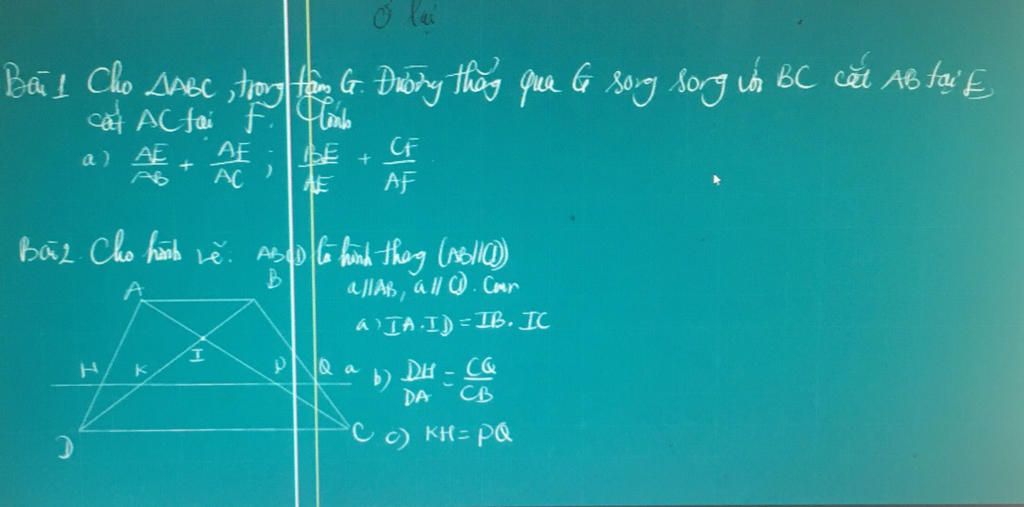 Ở lại
Bài 1 Cho ΔABC, trọng tâm G. Đường thẳng qua G song song với BC cắt AB tại E,
cắt AC tại F. Tính
a) AE/AB + AF/AC ; BE/AE + CF/AF
Bài 2. Cho hình vẽ. ABCD là hình thang (AB//CD)
a//AB, a//CD. Cmr
a) IA.ID = IB.IC
b) DH/DA = CQ/CB
c) KH = PQ
A B
I
H K P Q a
D C